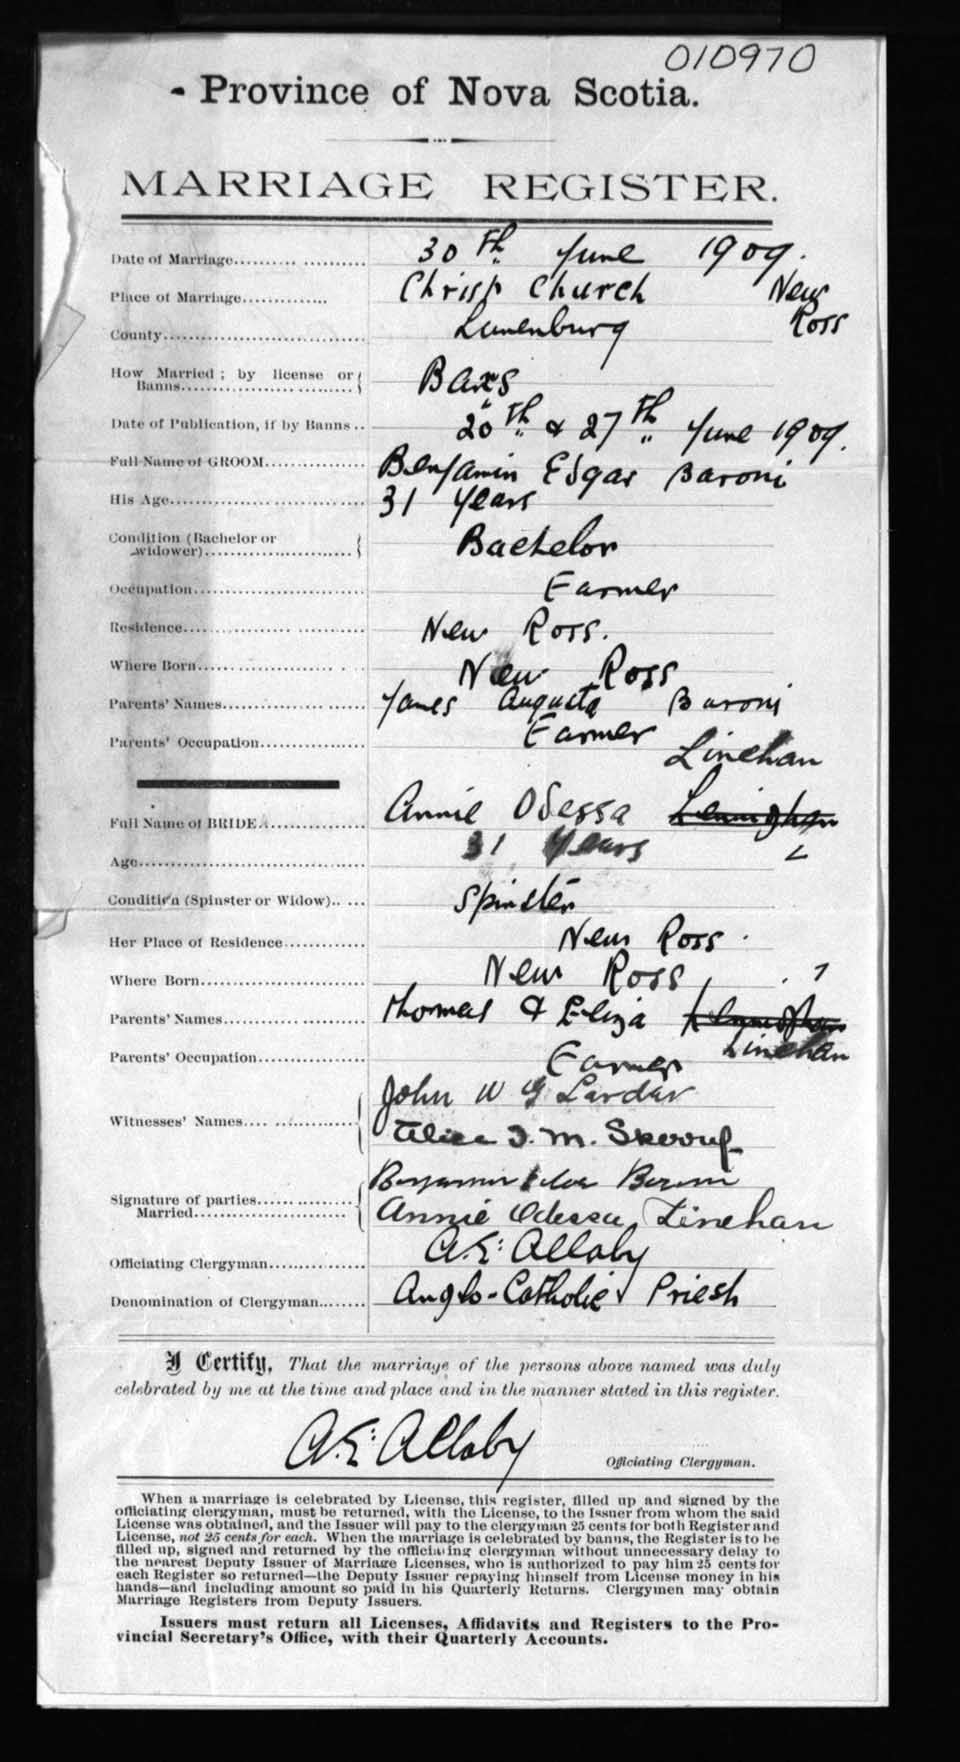 010970
Province of Nova Scotia.
MARRIAGE REGISTER.
Date of Marriage 30th June 1909.
Place of Marriage Christ Church New Ross
County Lunenburg
How Married; by license or Banns
Date of Publication, if by Banns 20th & 27th June 1909.
Full Name of GROOM Benjamin Edgar Baroni
His Age 31 Years
Condition (Bachelor or widower) Bachelor
Occupation Farmer
Residence New Ross.
Where Born New Ross
Parents' Names James Augusta Baroni
Parents' Occupation Farmer
Linehan
Full Name of BRIDE Annie Odessa
Age 31 Years
Condition (Spinster or Widow) Spinster
Her Place of Residence New Ross.
Where Born New Ross
Parents' Names Thomas & Eliza
Linehan
Parents' Occupation Farmer
Witnesses' Names John W G Larder
M.
Signature of parties Married Benjamin
Annie Odessa Linehan
Officiating Clergyman A. E. Allaby
Denomination of Clergyman Anglo-Catholic Priest
I Certify, That the marriage of the persons above named was duly
celebrated by me at the time and place and in the manner stated in this register.
A. E. Allaby
Officiating Clergyman.
When a marriage is celebrated by License, this register, filled up and signed by the
officiating clergyman, must be returned, with the License, to the Issuer from whom the said
License was obtained, and the Issuer will pay to the clergyman 25 cents for both Register and
License, not 25 cents for each. When the marriage is celebrated by banns, the Register is to be
filled up, signed and returned by the officiating clergyman without unnecessary delay to
the nearest Deputy Issuer of Marriage Licenses, who is authorized to pay him 25 cents for
each Register so returned—the Deputy Issuer repaying himself from License money in his
hands—and including amount so paid in his Quarterly Returns. Clergymen may obtain
Marriage Registers from Deputy Issuers.
Issuers must return all Licenses, Affidavits and Registers to the Pro-
vincial Secretary's Office, with their Quarterly Accounts.